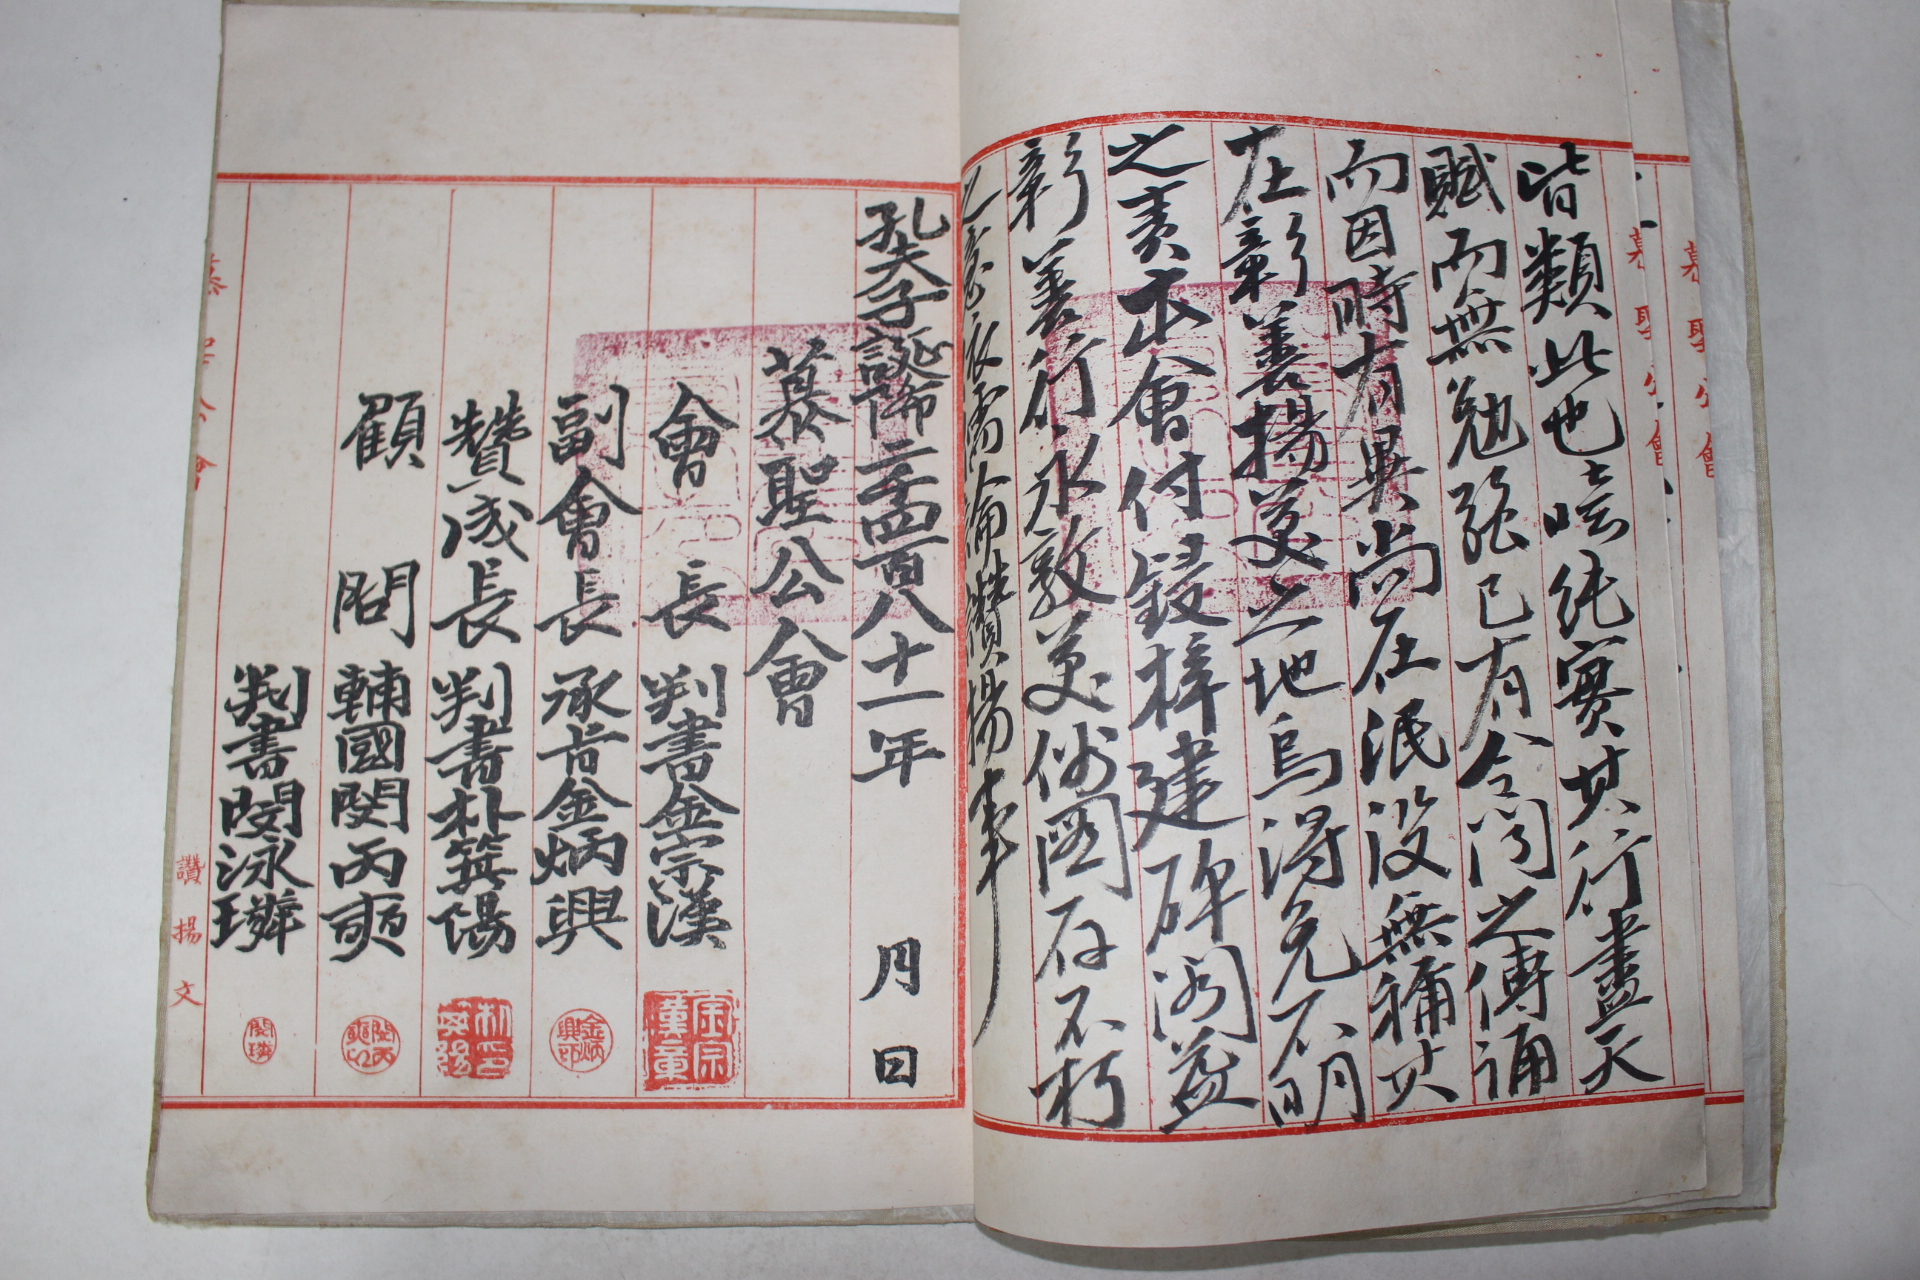 皆類此也噫純實其行盡天
賦而無勉強已有令聞之傳誦
而因時有異尚在泯沒無稱其
在彰善揚美之地烏得免不明
之責本會付鋟梓建碑閣益
彰善行永敦美俗圖存不朽
之意依儒論讚揚事
孔夫子誕降二千四百八十一年 月 日
慕聖公會
會長 判書金宗漢
副會長 承旨金炳興
贊成長 判書朴箕陽
顧問 輔國閔丙奭
判書閔泳璘
慕聖公會 讚揚文
慕聖公會
慕聖公會